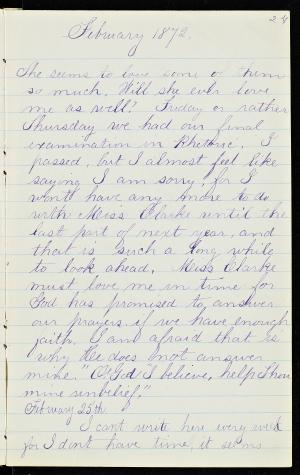 24
February 1872.
She seems to love some of them
so much. Will she ever love
me as well? Friday or rather
Thursday we had our final
examination in Rhetoric. I
passed, but I almost feel like
saying I am sorry, for I
won't have any more to do
with Miss Clarke until the
last part of next year, and
that is such a long while
to look ahead. Miss Clarke
must love me in time for
God has promised to answer
our prayers if we have enough
faith. I am afraid that is
why He does not answer
mine. "O God I believe, help Thou
mine unbelief."
February 25th.
I cant write here every week
for I dont have time, it seems